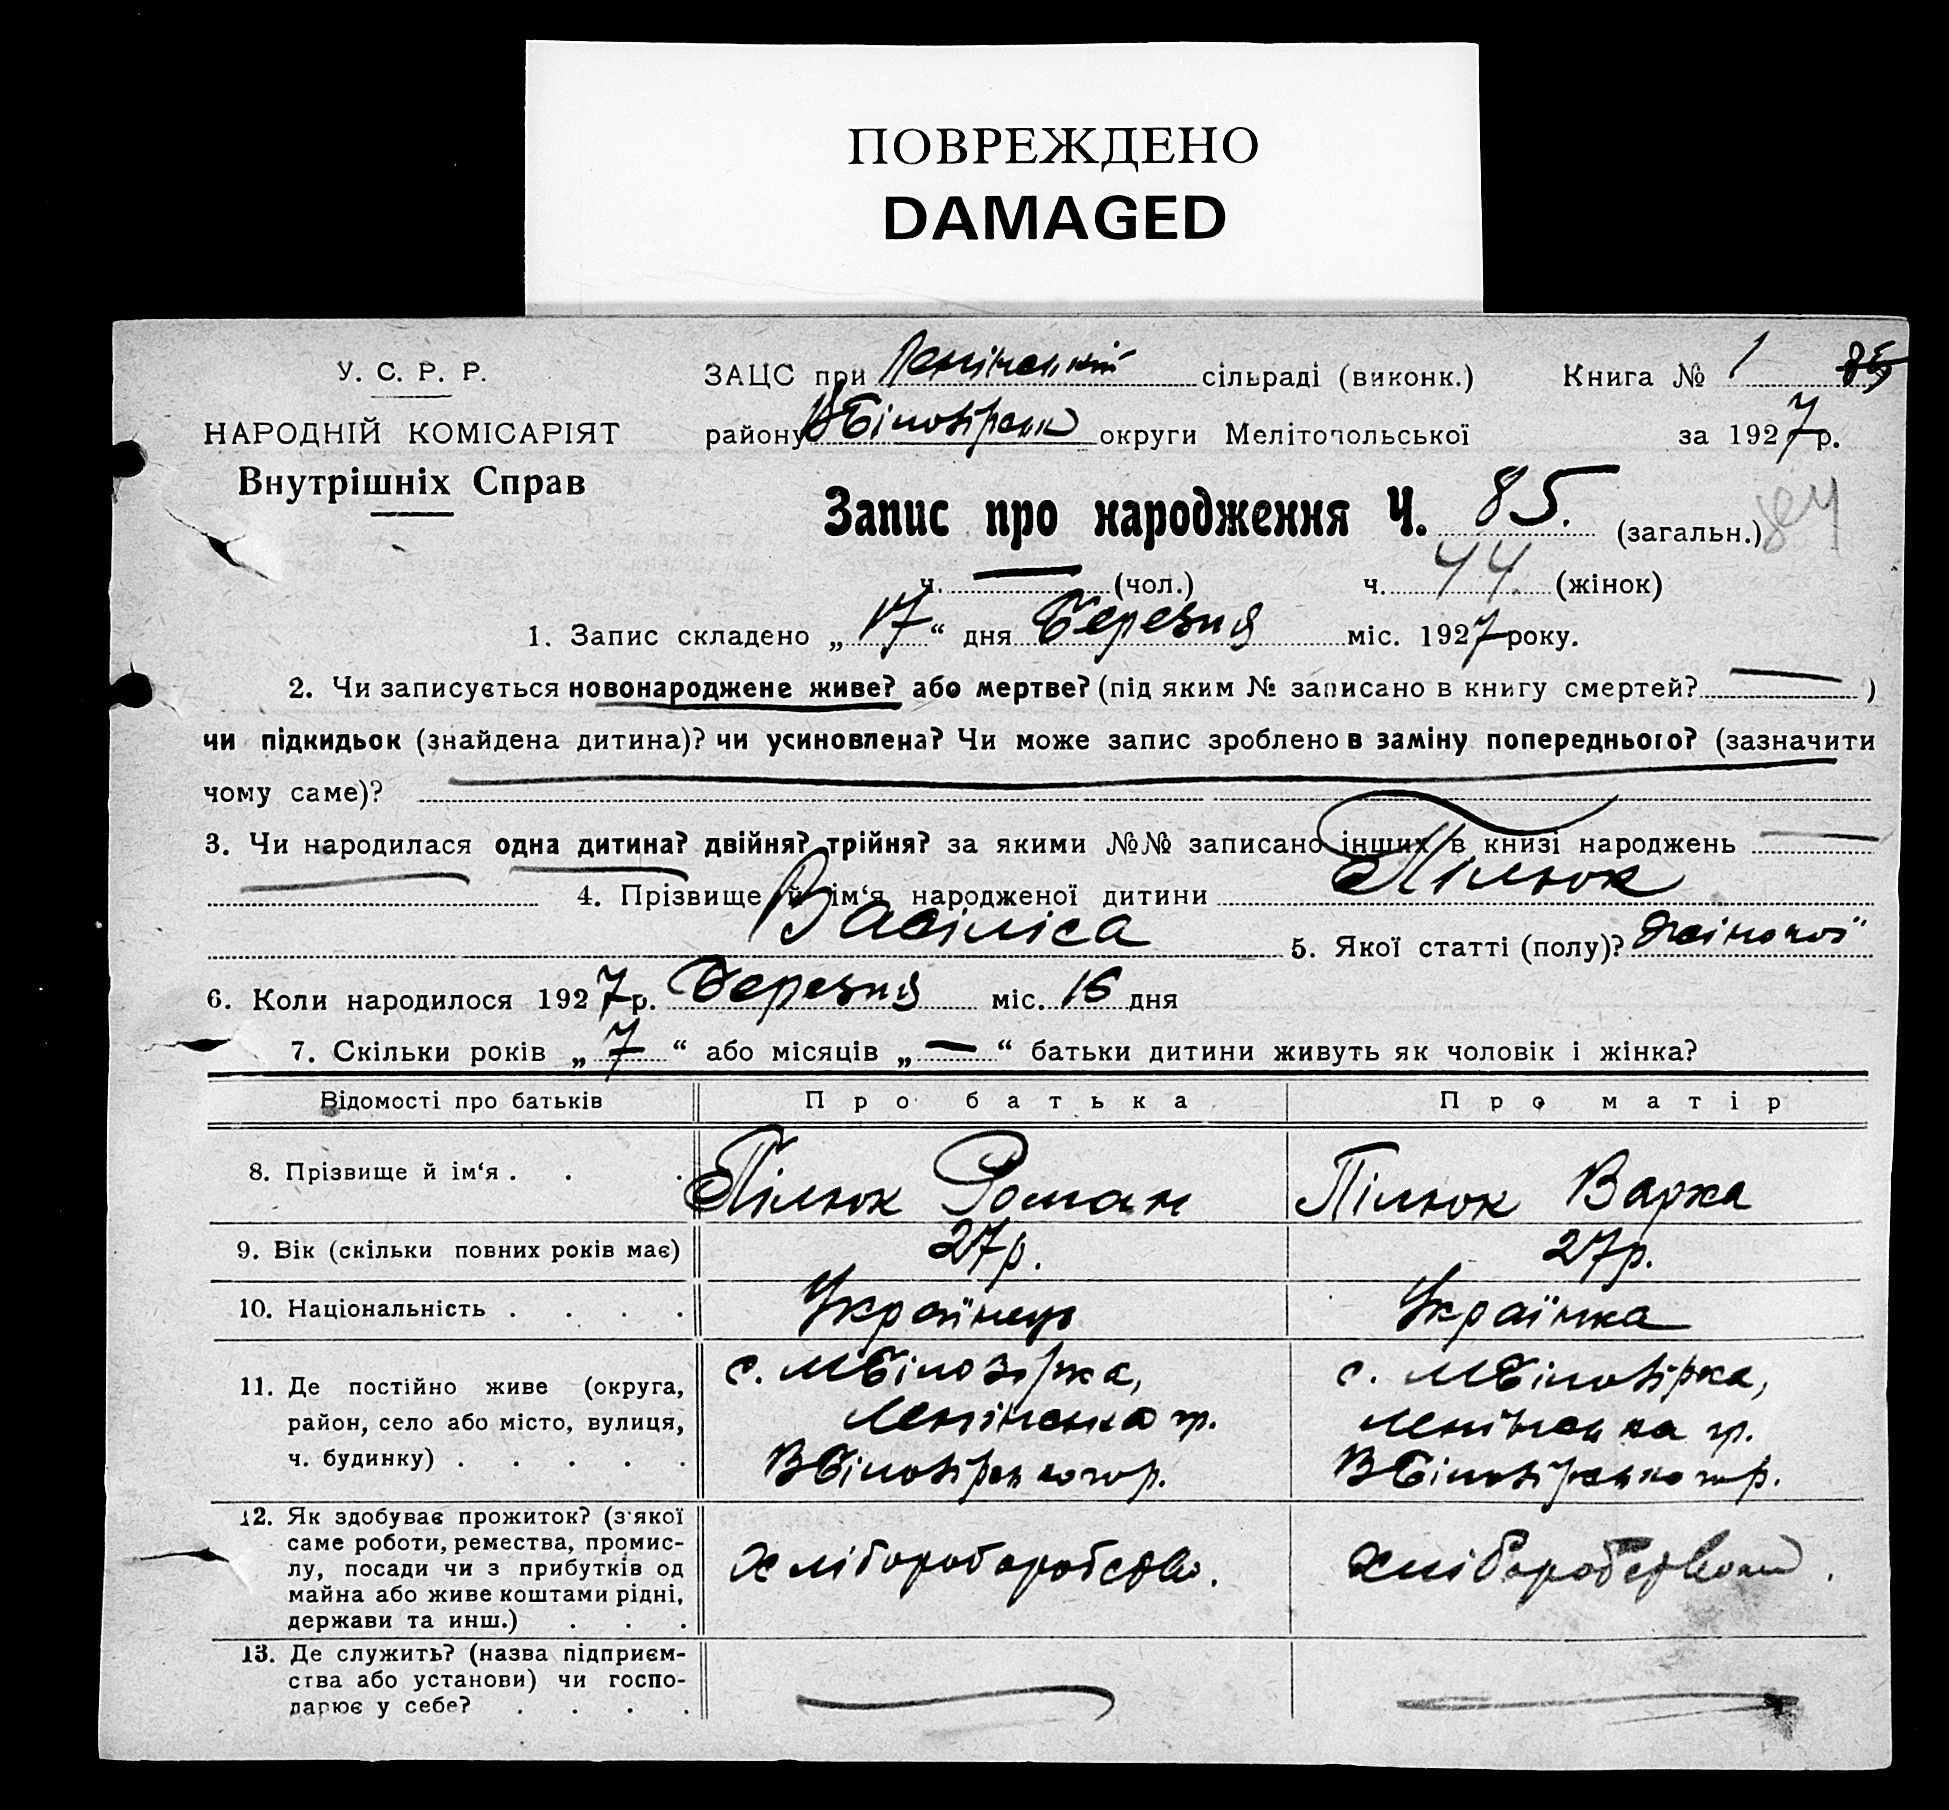 ПОВРЕЖДЕНО
DAMAGED
У. С. Р. Р.
НАРОДНІЙ КОМІСАРІЯТ
Внутрішніх Справ
ЗАЦС при Ленінській сільраді (виконк.) Книга № 1 85
району ВБілозірськ округи Мелітопольської за 1927 р.
Запис про народження Ч. 85. (загальн.) 84
ч. — (чол.) ч. 44 (жінок)
1. Запис складено „ 17 “ дня Березня міс. 1927 року.
2. Чи записується новонароджене живе? або мертве? (під яким № записано в книгу смертей? — )
чи підкидьок (знайдена дитина)? чи усиновлена? Чи може запис зроблено в заміну попереднього? (зазначити
чому саме)?
3. Чи народилася одна дитина? двійня? трійня? за якими №№ записано інших в книзі народжень —
4. Прізвище й ім‘я народженої дитини Пілюк
Васіліса 5. Якої статті (полу)? жіночої
6. Коли народилося 1927 р. Березня міс. 16 дня
7. Скільки років „ 7 “ або місяців „ — “ батьки дитини живуть як чоловік і жінка?
Відомості про батьків Про батька Про матір
8. Прізвище й ім‘я . . . Пілюк Роман Пілюк Варка
9. Вік (скільки повних років має) 27р. 27р.
10. Національність . . . . Українець Українка
11. Де постійно живе (округа, район, село або місто, вулиця, ч. будинку) . . . . .
с. МБілозірка,
Ленінська гр.
ВБілозірського р.
с. МБілозірка,
Ленінська гр.
ВБілозірського р.
12. Як здобуває прожиток? (з'якої
саме роботи, ремества, промис-
лу, посади чи з прибутків од
майна або живе коштами рідні,
держави та инш.) . . .
хлібороборобство.
хліборобством.
13. Де служить? (назва підприєм-
ства або установи) чи госпо-
дарює у себе? . . . .